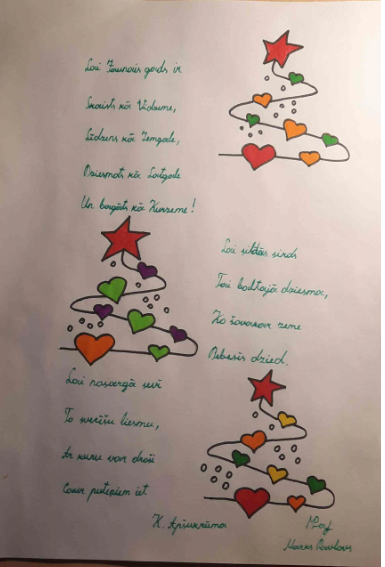 Lai Jaunais gads ir
Skaists kā Vidzeme,
Līdzens kā Zemgale,
Dziesmots kā Latgale
Un bagāts kā Kurzeme!
Lai sildās sirds
Tai baltajā dziesmā,
Ko šovakar zeme
Debesīs dzied.
Lai nosargā sevī
To svecīšu liesmu,
Ar kuru var droši
Caur puteņiem iet
K. Apšukrūma